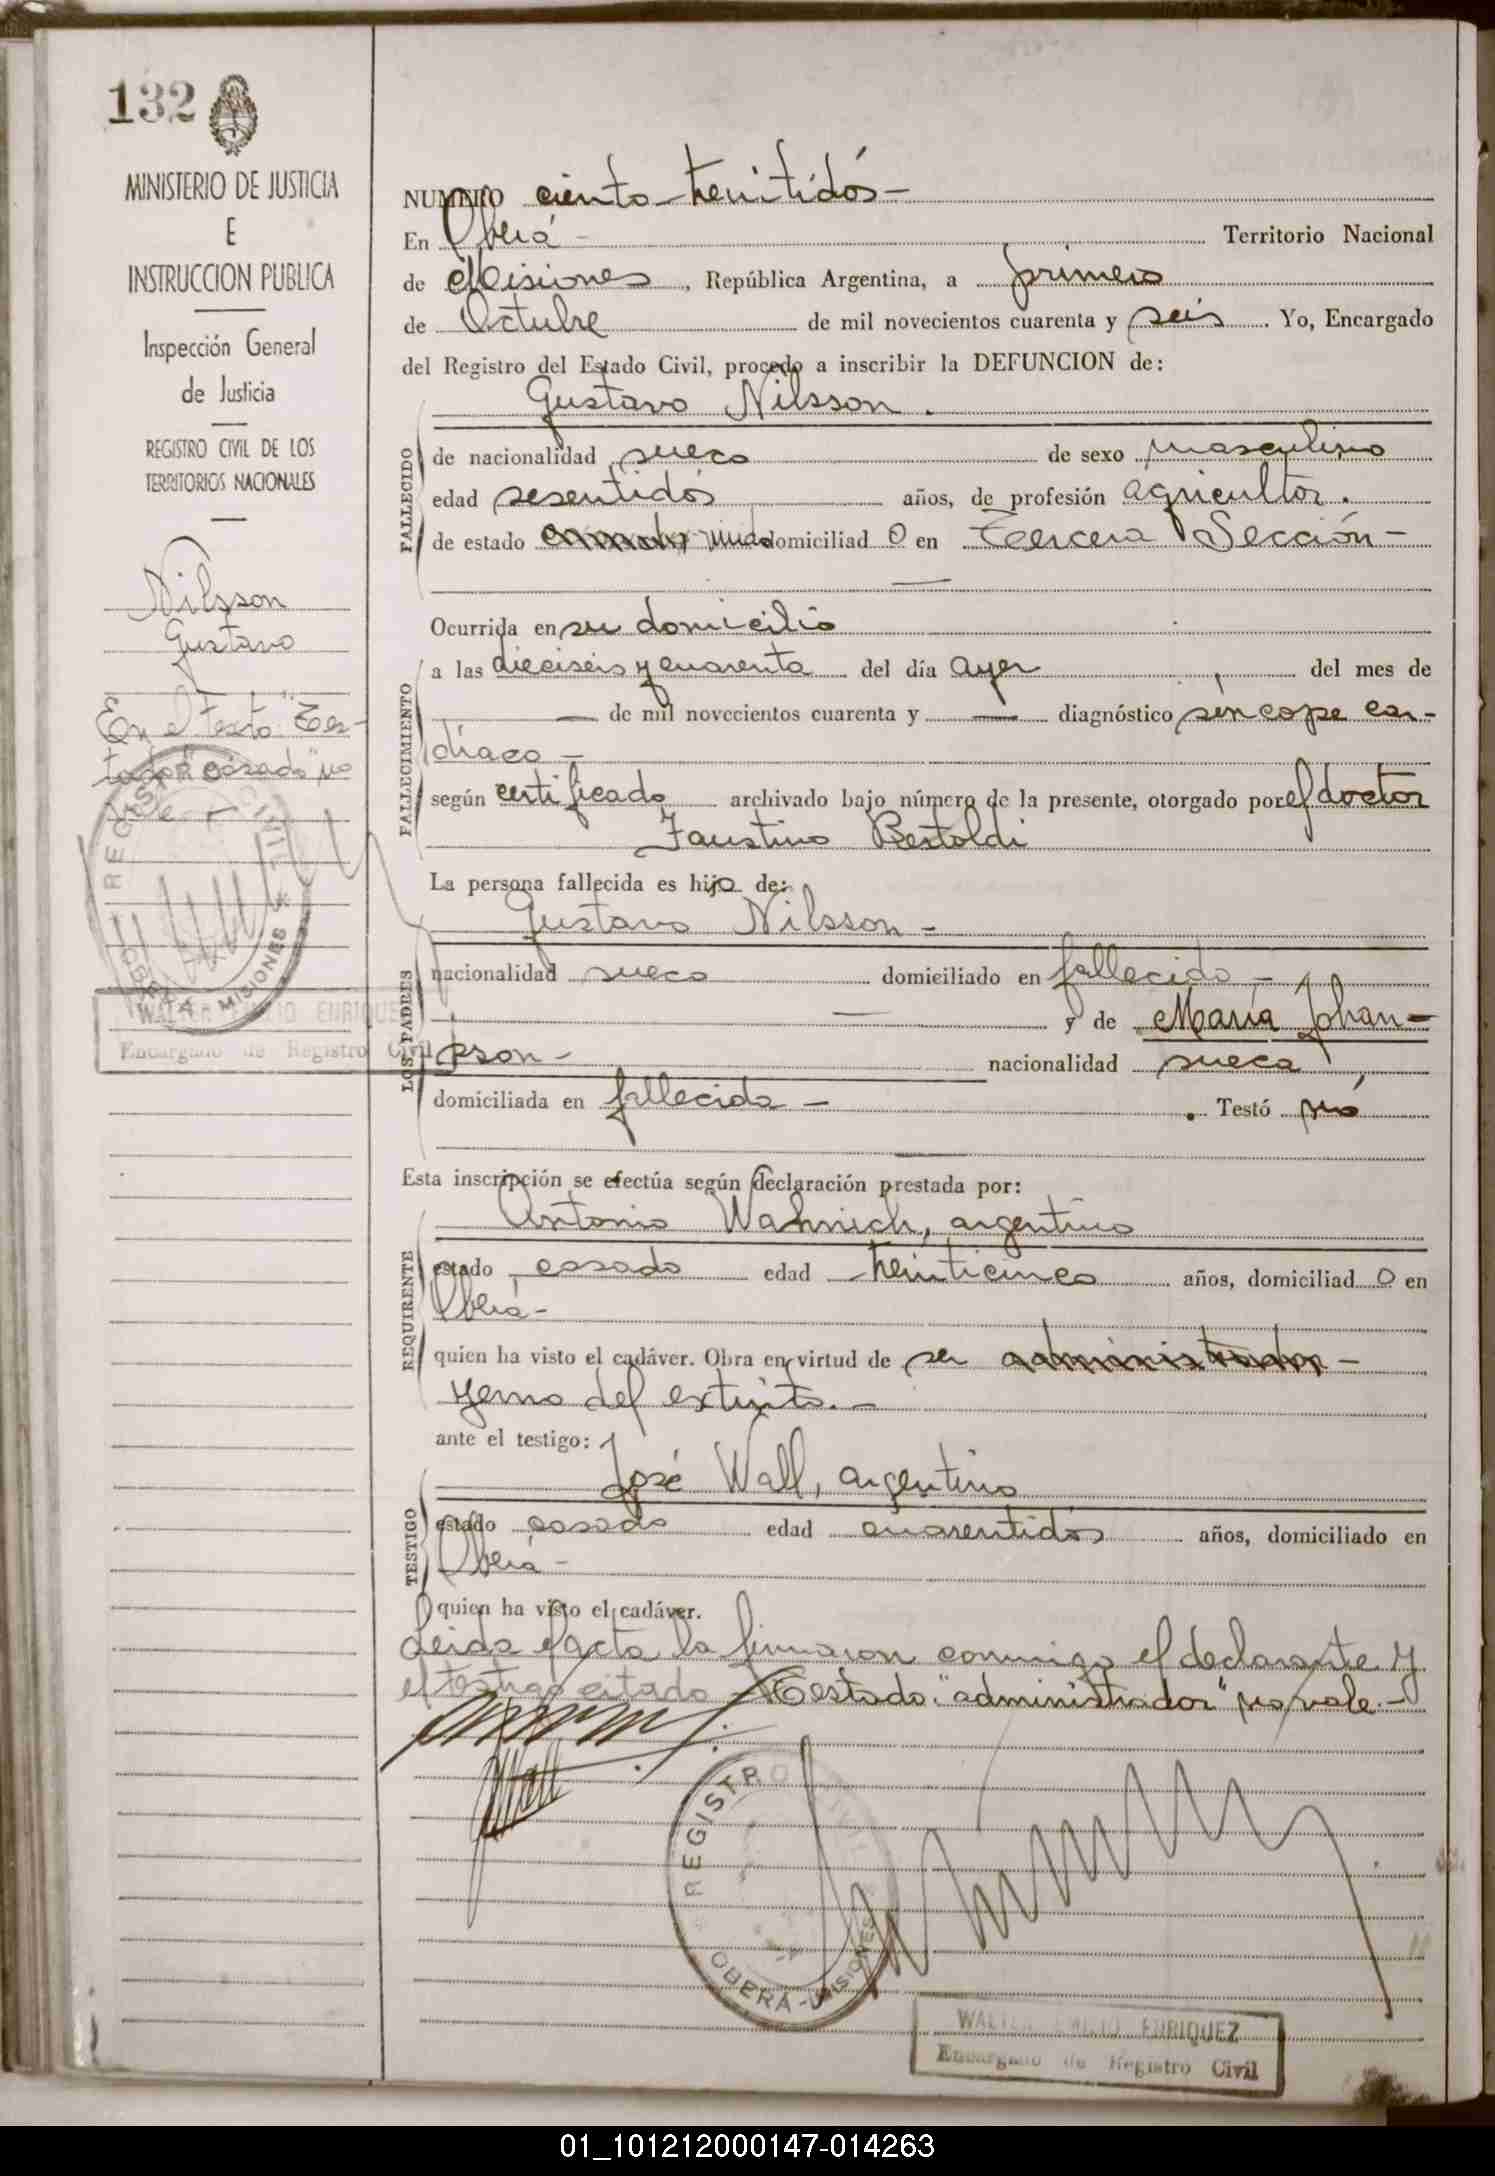 132
MINISTERIO DE JUSTICIA
E
INSTRUCCION PUBLICA
Inspección General
de Justicia
REGISTRO CIVIL DE LOS
TERRITORIOS NACIONALES
Nilsson
Gustavo
En el texto "Tes-
tado" "casado" no
vale -
REGISTRO CIVIL
OBERA - MISIONES
WALTER EMILIO ENRIQUEZ
Encargado de Registro Civil
NUMERO ciento treintidós -
En Oberá - Territorio Nacional
de Misiones, República Argentina, a primero
de Octubre de mil novecientos cuarenta y seis. Yo, Encargado
del Registro del Estado Civil, procedo a inscribir la DEFUNCION de:
Gustavo Nilsson.
FALLECIDO
de nacionalidad sueco de sexo masculino
edad sesentidós años, de profesión agricultor.
de estado casado viudo domiciliado en Tercera Sección -
Ocurrida en su domicilio
FALLECIMIENTO
a las dieciseis y cuarenta del día ayer, del mes de
— de mil novecientos cuarenta y — diagnóstico síncope car-
díaco -
según certificado archivado bajo número de la presente, otorgado por el doctor
Faustino Bertoldi
La persona fallecida es hijo de:
Gustavo Nilsson -
LOS PADRES
nacionalidad sueco domiciliado en fallecido -
— y de María Johan-
sson - nacionalidad sueca,
domiciliada en fallecida - . Testó no
Esta inscripción se efectúa según declaración prestada por:
Antonio Wahnich, argentino
REQUIRENTE
estado casado edad treinticinco años, domiciliado en
Oberá -
quien ha visto el cadáver. Obra en virtud de ser administrador -
yerno del extinto. -
ante el testigo:
José Wall, argentino
TESTIGO
estado casado edad cuarentidós años, domiciliado en
Oberá -
quien ha visto el cadáver.
Leida el acta la firmaron conmigo el declarante y
el testigo citado - Testado: "administrador" no vale. -
Wall
REGISTRO CIVIL
OBERÁ - MISIONES
WALTER EMILIO ENRIQUEZ
Encargado de Registro Civil
01_101212000147-014263